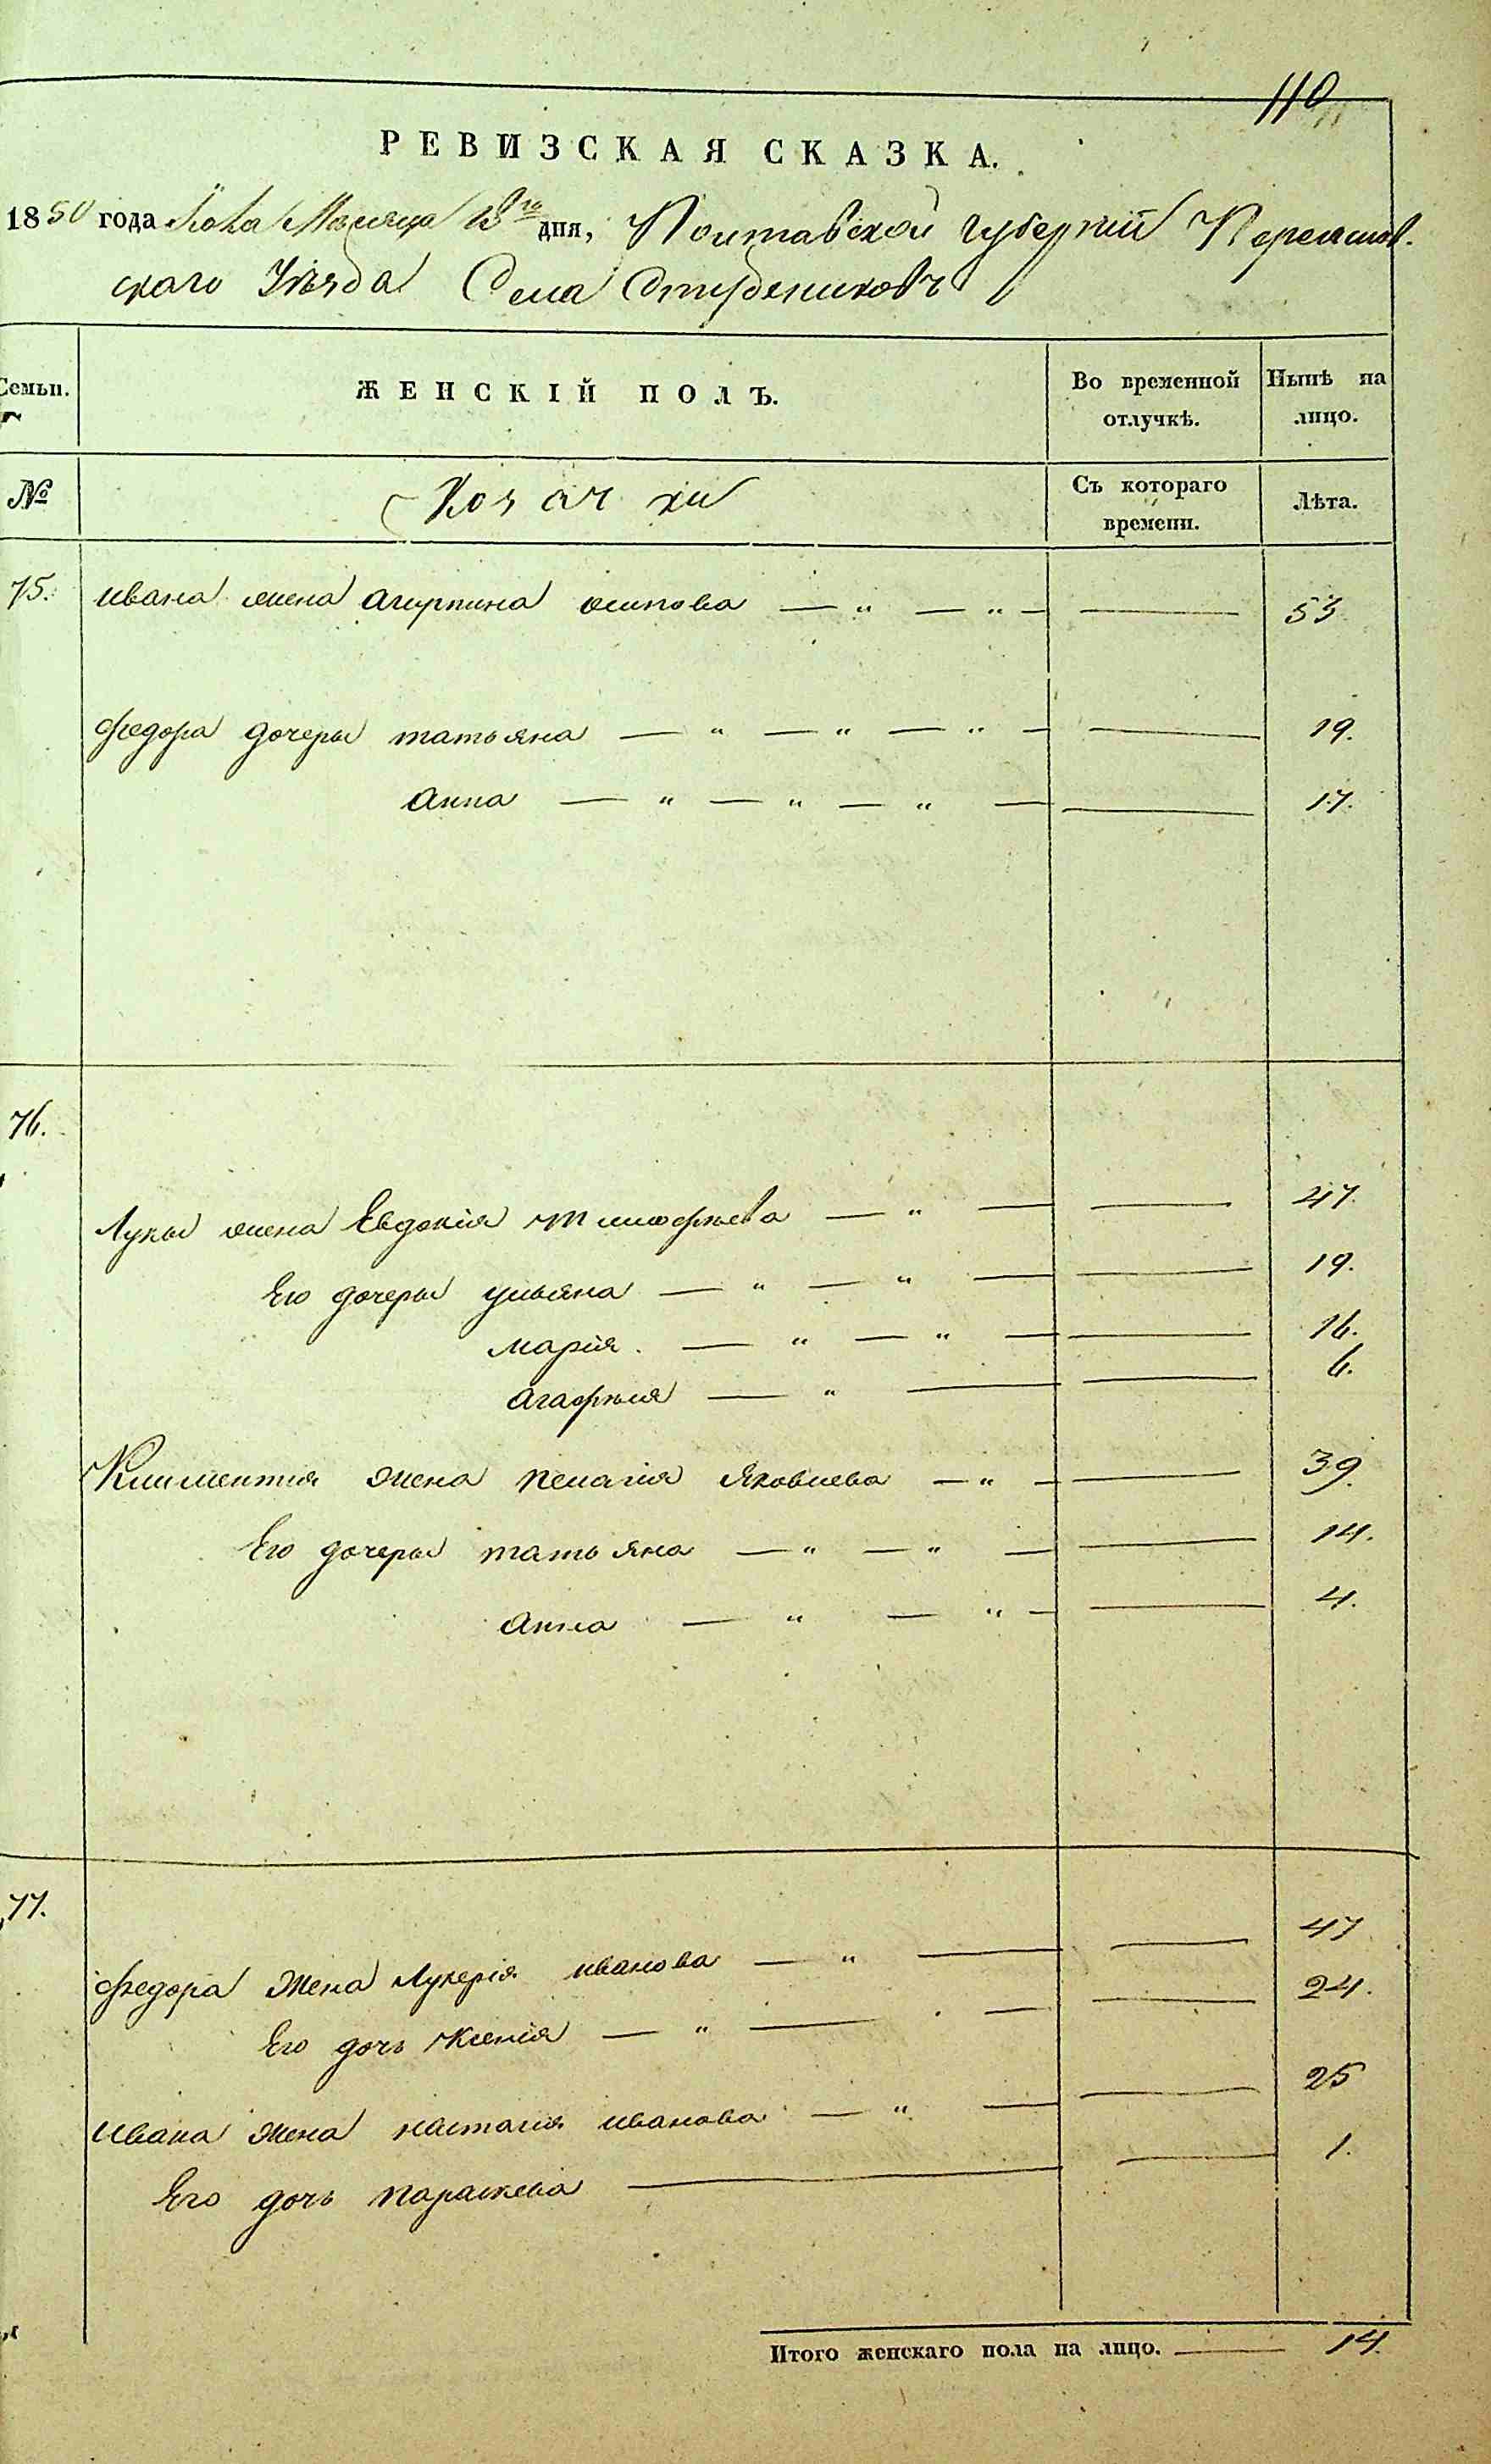 110
РЕВИЗСКАЯ СКАЗКА.
1850 года Мѣсяца дня, Полтавской губерніи Переяслов-
скаго Уѣзда Села Студениковъ
Семьи. ЖЕНСКІЙ ПОЛЪ. Во временной отлучкѣ. Нынѣ на лицо.
№ Козачки Съ котораго времени. Лѣта.
75. ивана жена агирпина осипова — " — " — — 53
федора дочеры татьяна — " — " — " — — 19.
анна — " — " — " — — 17.
76.
Лукы жена Евдокія тимофѣева — " — — 47.
Его дочеры ульяна — " — " — — 19.
марія. — " — " — — 16.
агафѣия — " — — 6.
Климентія жена пелагія Яковлева — " — — 39.
Его дочеры татьяна — " — " — — 14.
анна — " — " — — 4.
77.
федора жена Лукерія иванова — " — — 47
Его дочь Ксенія — " — — — 24.
ивана жена настасія иванова — " — — 25
Его дочь параскева — — 1.
Итого женскаго пола на лицо. — 14.